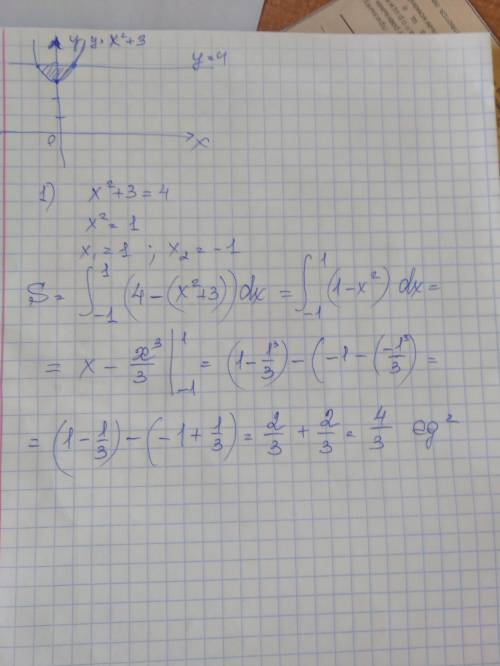 y y=x²+3
y=4
0 x
1) x²+3=4
x²=1
x₁=1 ; x₂=-1
S= ∫₋₁¹ (4-(x²+3))dx = ∫₋₁¹ (1-x²) dx=
= x - x³/3 |₋₁¹ = (1-1³/3)-(-1-(-1³/3) =
= (1-1/3)-(-1+1/3)= 2/3 + 2/3 = 4/3 ед²